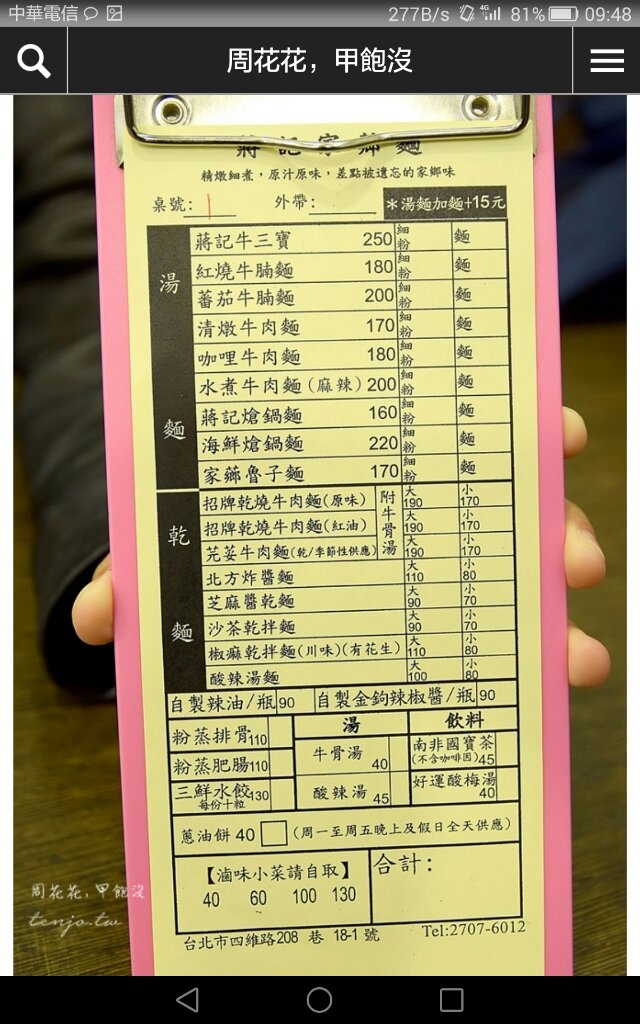 中華電信 277B/s 4G 81% 09:48
周花花，甲飽沒
蔣記家薌麵
精燉細煮，原汁原味，差點被遺忘的家鄉味
桌號： 外帶： *湯麵加麵+15元
湯麵
蔣記牛三寶 250 細粉 麵
紅燒牛腩麵 180 細粉 麵
蕃茄牛腩麵 200 細粉 麵
清燉牛肉麵 170 細粉 麵
咖哩牛肉麵 180 細粉 麵
水煮牛肉麵(麻辣) 200 細粉 麵
蔣記熗鍋麵 160 細粉 麵
海鮮熗鍋麵 220 細粉 麵
家薌魯子麵 170 細粉 麵
乾麵
附牛骨湯
招牌乾燒牛肉麵(原味) 大190 小170
招牌乾燒牛肉麵(紅油) 大190 小170
芫荽牛肉麵(乾/季節性供應) 大190 小170
北方炸醬麵 大110 小80
芝麻醬乾麵 大90 小70
沙茶乾拌麵 大90 小70
椒麻乾拌麵(川味)(有花生) 大110 小80
酸辣湯麵 大100 小80
自製辣油/瓶 90 自製金鉤辣椒醬/瓶 90
粉蒸排骨 110
粉蒸肥腸 110
三鮮水餃 130
每份十粒
湯
牛骨湯 40
酸辣湯 45
飲料
南非國寶茶
(不含咖啡因) 45
好運酸梅湯 40
蔥油餅 40 (周一至周五晚上及假日全天供應)
【滷味小菜請自取】
40 60 100 130
合計：
台北市四維路208 巷 18-1 號 Tel:2707-6012
周花花，甲飽沒
tenjo.tw